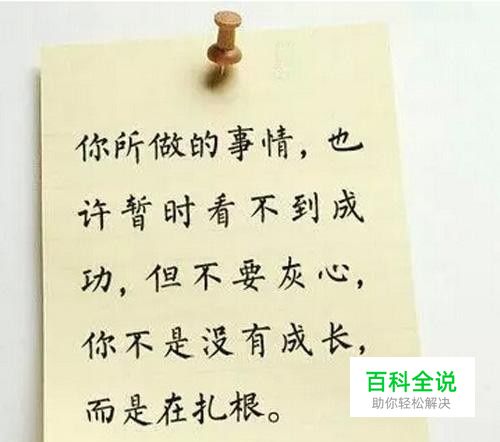 你所做的事情，也
许暂时看不到成
功，但不要灰心，
你不是没有成长，
而是在扎根。
百科全说
助你轻松解决